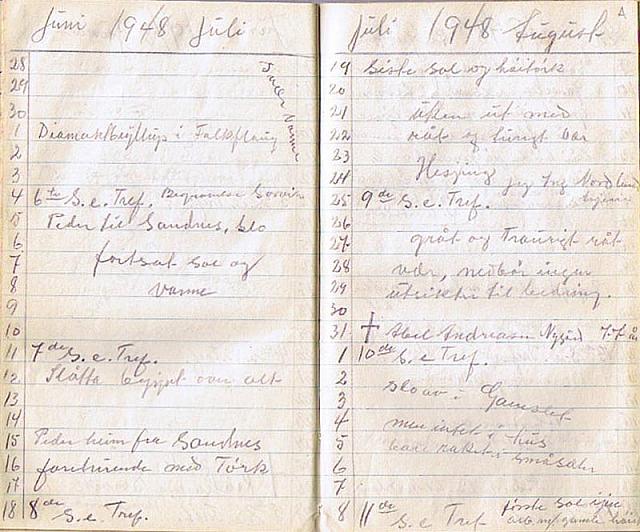 Juni 1948 Juli
28
29
30
1 Diamantbryllup i Falkflaug
2
3
4 6te S.e. Tref.
5 Peder til Sandnes, slo
6
7 fortsat sol og
8 varme
9
10
11 7de S.e. Tref.
12 Slåtta begynt over alt
13
14
15 Peder heim fra Sandnes
16 fortsættende med Tørk
17
18 8de S.e. Tref.
Juli 1948 August
19 Siste sol og høitørk
20
21 Uken ut med
22 råt og surigt vær
23 Hesjing
24 jeg Ing Nordland
25 9de S.e. Tref.
26
27 gråt og Traurigt råt
28 vær, nedbør ingen
29 utsikter til bedring.
30
31 † Abel Andreasen Nygård 77 år
1 10de S.e Tref.
2 slo av i Gamslet
3
4 men intet i hus
5 bare raket i småsåter
6
7
8 11de S.e Tref første sol igjen